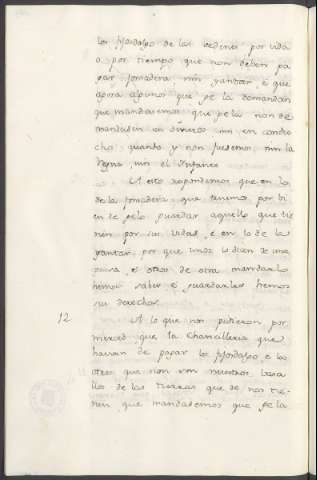 los fijosdalgo de las ordenes por vida
o por tiempo que non deben pa
gar fonsadera, nin yantar, é que
agora algunos que ge la demandan
que mandaremos que ge la non de
manden en dinero nin en condu
cho quando y non fuesemos nin la
Regna, nin el Infante
A esto respondemos que en lo
de la fonsadera, que tenemos por bi
en de gelo guardar aquello que tie
nen por sus vidas, é en lo de la
yantar, por que unos lo dicen de una
guisa, é otros de otra mandarlo
hemos saber é guardarles hemos
su derecho.
12
A lo que nos pidieron por
merced que la Chancilleria que
havian de pagar los fijosdalgo, e los
otros que non son nuestros vasa
llos de las tierras que de nos tie
nen que mandasemos que ge la